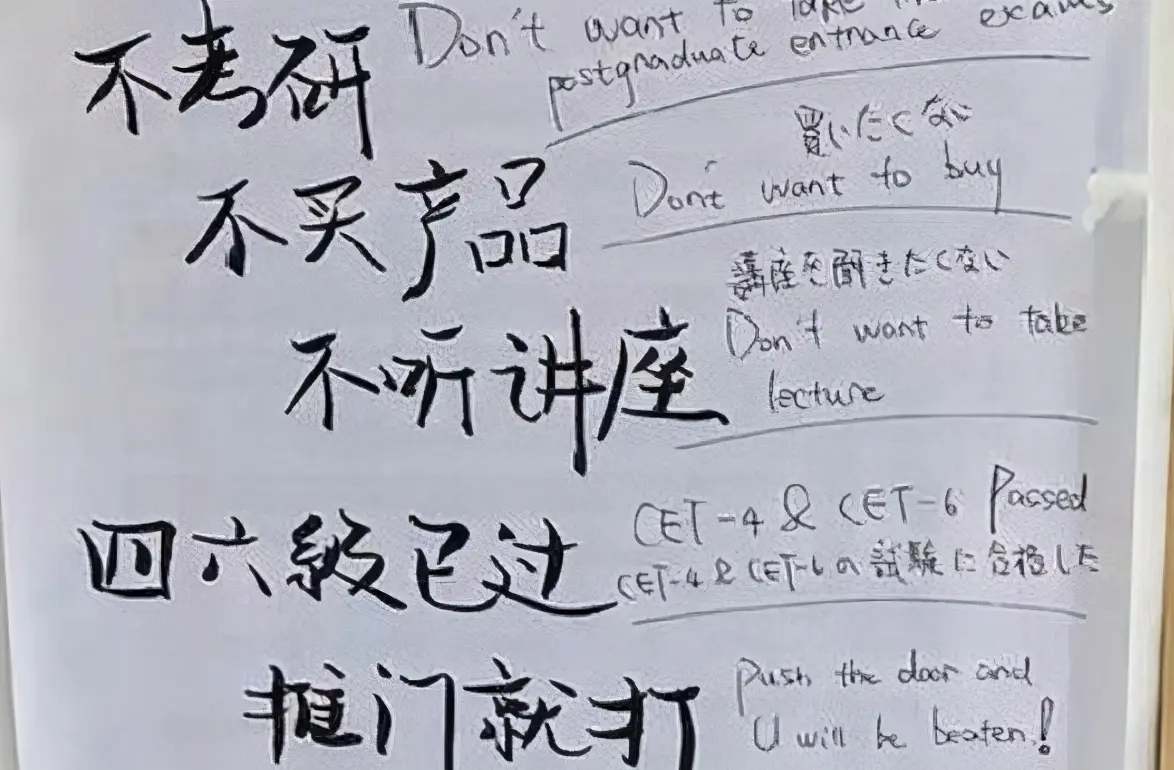 不考研
Don't want to take
postgraduate entrance exams
不买产品
買いたくない
Don't want to buy
不听讲座
講座を聞きたくない
Don't want to take
lecture
四六级已过
CET-4 & CET-6 Passed
CET-4 & CET-6の試験に合格した
推门就打
Push the door and
U will be beaten!